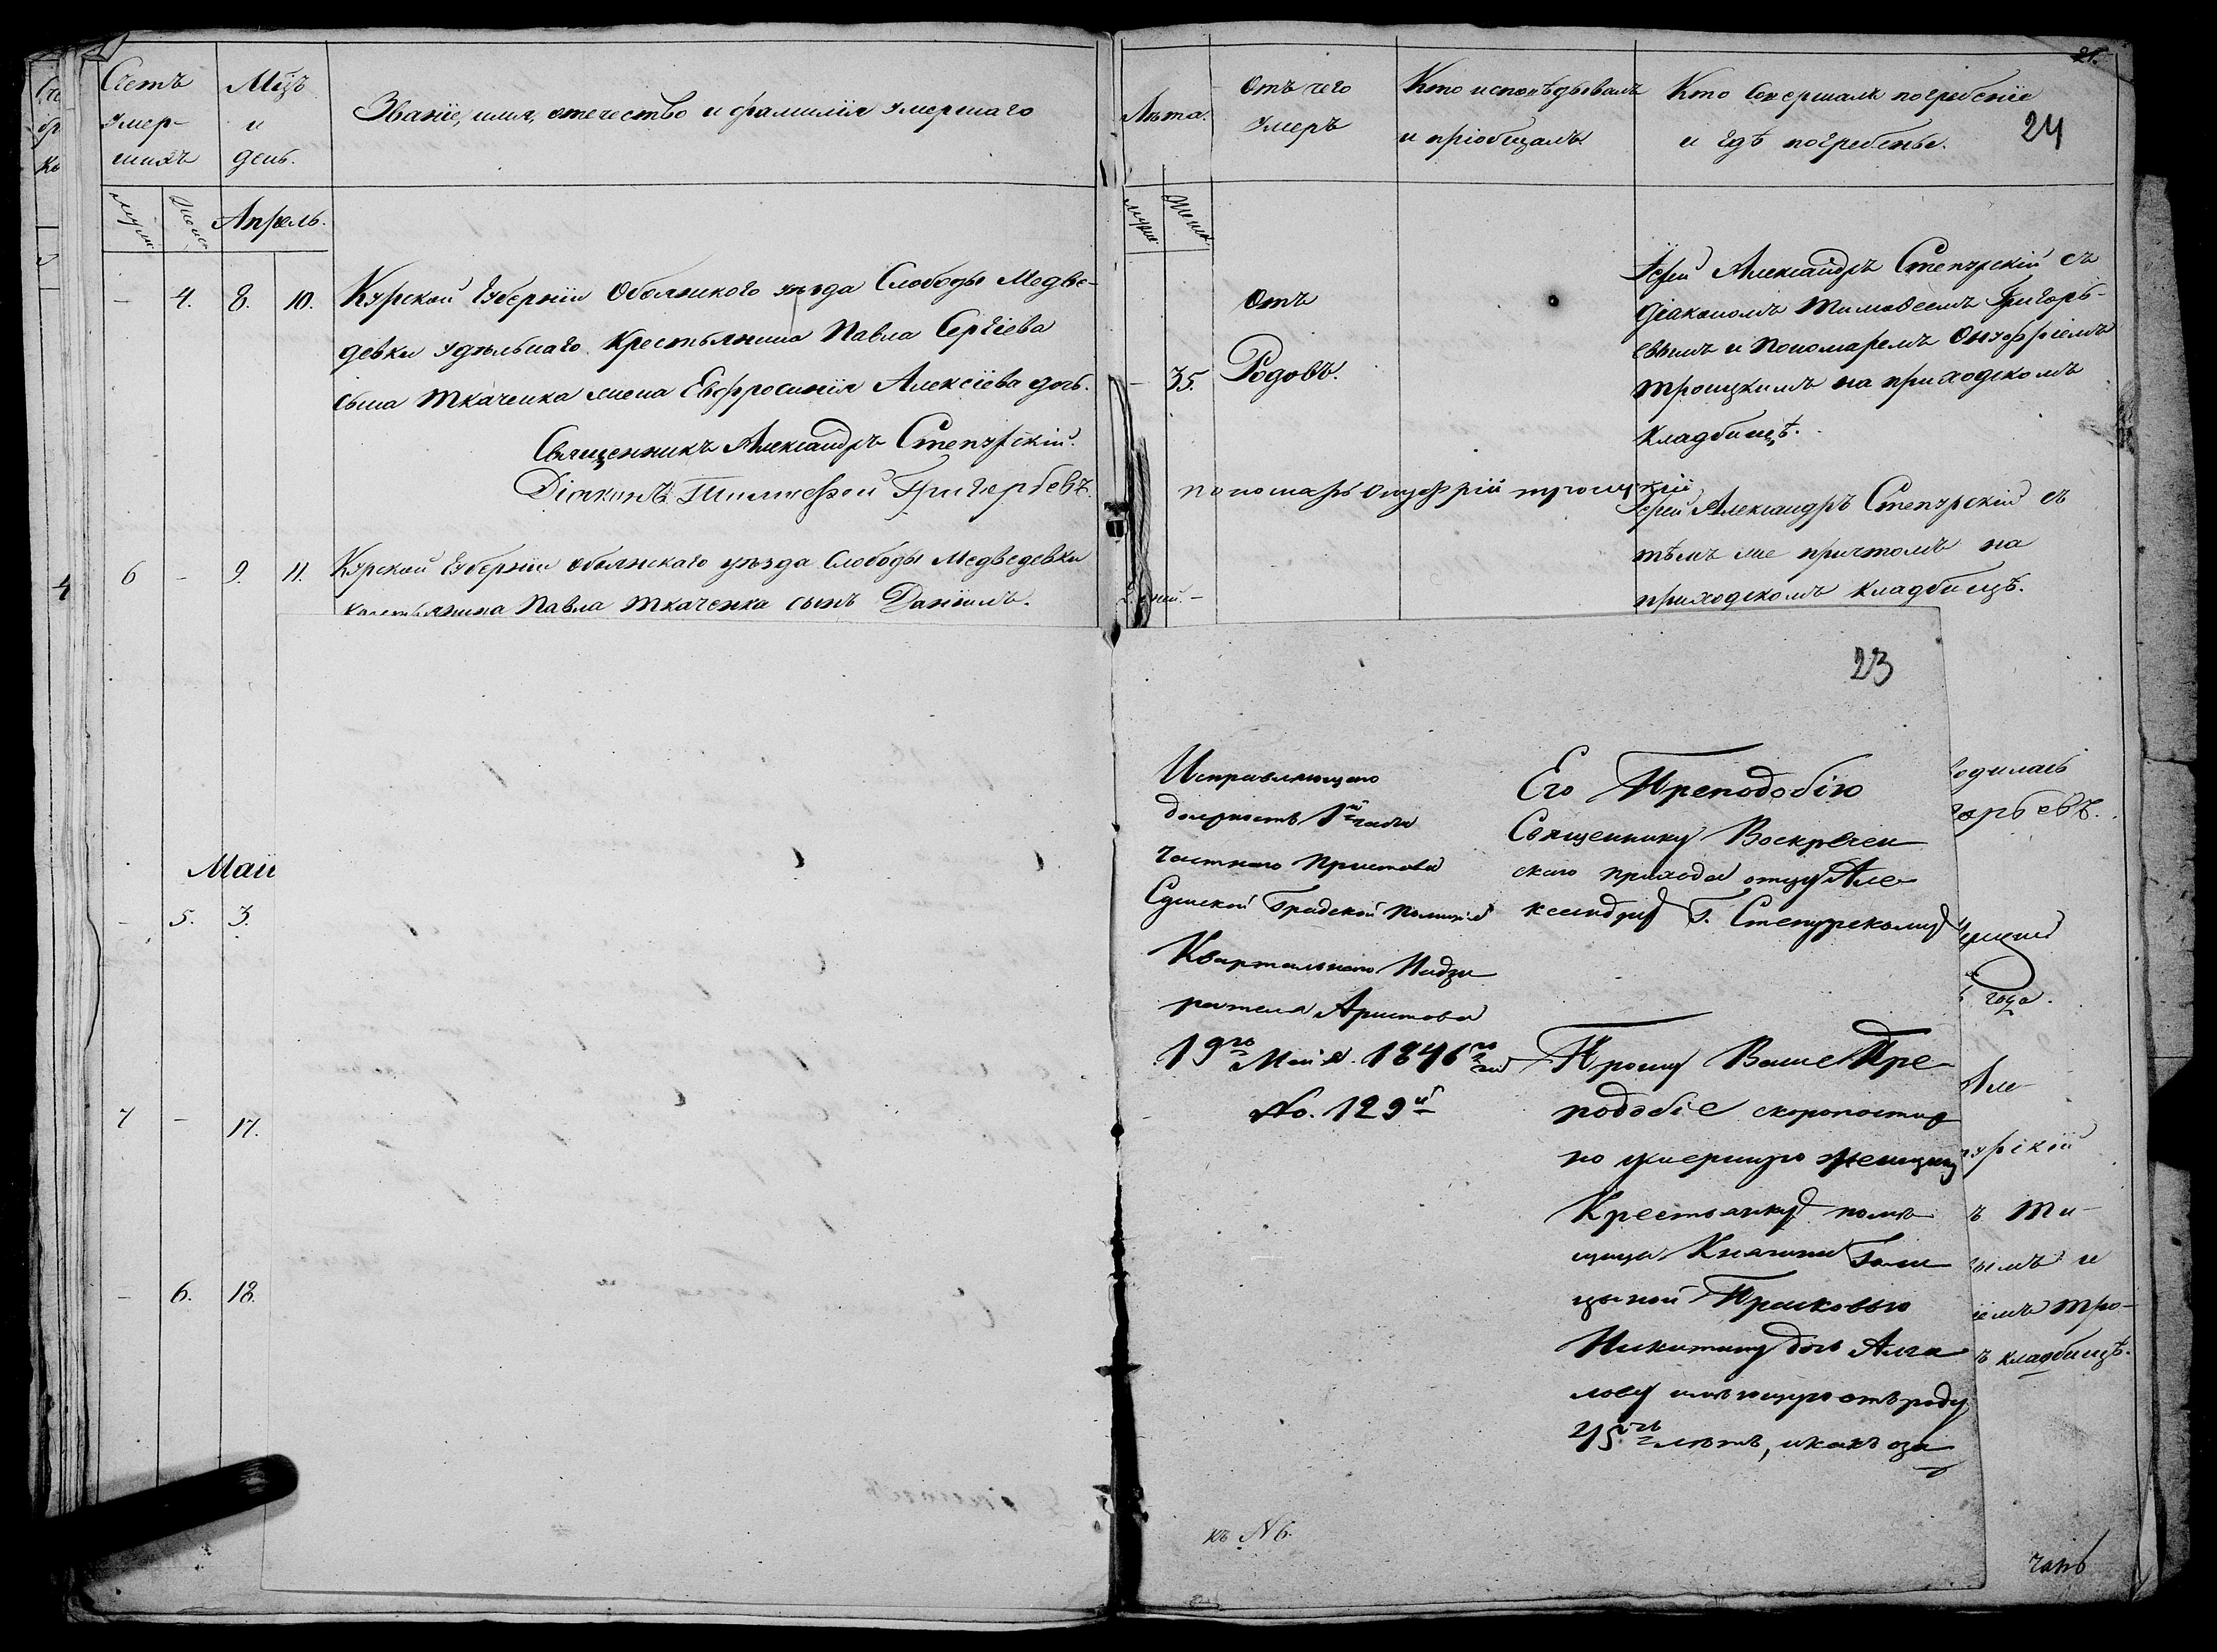 Счетъ умер-
шихъ
Мцъ
и
день.
Званіе, имя, отечество и фамилія умершаго
Лѣта.
Отъ чего
умеръ
Кто исповѣдывалъ
и пріобщалъ
Кто совершалъ погребеніе
и гдѣ погребены.
21.
24
муж.
женск.
Апрель.
муже.
женск.
– 4. 8. 10. Курской Губерніи Обоянского уѣзда Слободы Медве-
девки удѣльнаго Крестьянина Павла Сергіева
сына Ткаченка жена Евфросинія Алексіева дочь.
– 35.
Отъ
Родовъ.
Іерей Александръ Степурскій съ
Діакономъ Тимоѳеемъ Григорь-
евымъ и Пономаремъ Онуфріемъ
Троицкимъ на приходскомъ
кладбищѣ.
Священникъ Александръ Степурскій.
Діаконъ Тимоѳей Григорьевъ.
пономарь Онуфрій Троицкій
6 – 9. 11. Курской Губерніи Обоянскаго уѣзда Слободы Медведевки
крестьянина Павла Ткаченка сынъ Даніилъ.
дней. –
Іерей Александръ Степурскій съ
тѣмъ же причтомъ на
приходскомъ кладбищѣ.
4
Маи
– 5. 3.
7 – 17.
– 6. 18.
23
Исправляющаго
должность 1й части
Частнаго Пристава
Сумской Градской Полиціи
Квартальнаго Надзи
рателя Аристова
19го Мая. 1846го
No. 129й
къ N6.
Его Преподобію
Священнику Воскресен
скаго прихода отцу Але
ксандру Г. Степурскому
Прошу Ваше Пре
подобіе скоропостиж
но умершую женщину
Крестьянку помѣ
щицы Княгини Голи
цыной Парасковью
Никитину дочь
лову имѣющую отъ роду
45ть лѣтъ, и какъ ока
одилась
горьевъ.
года.
Але-
пурскій
ъ Ти-
вымъ и
іемъ Тро-
ъ кладбищѣ.
часть